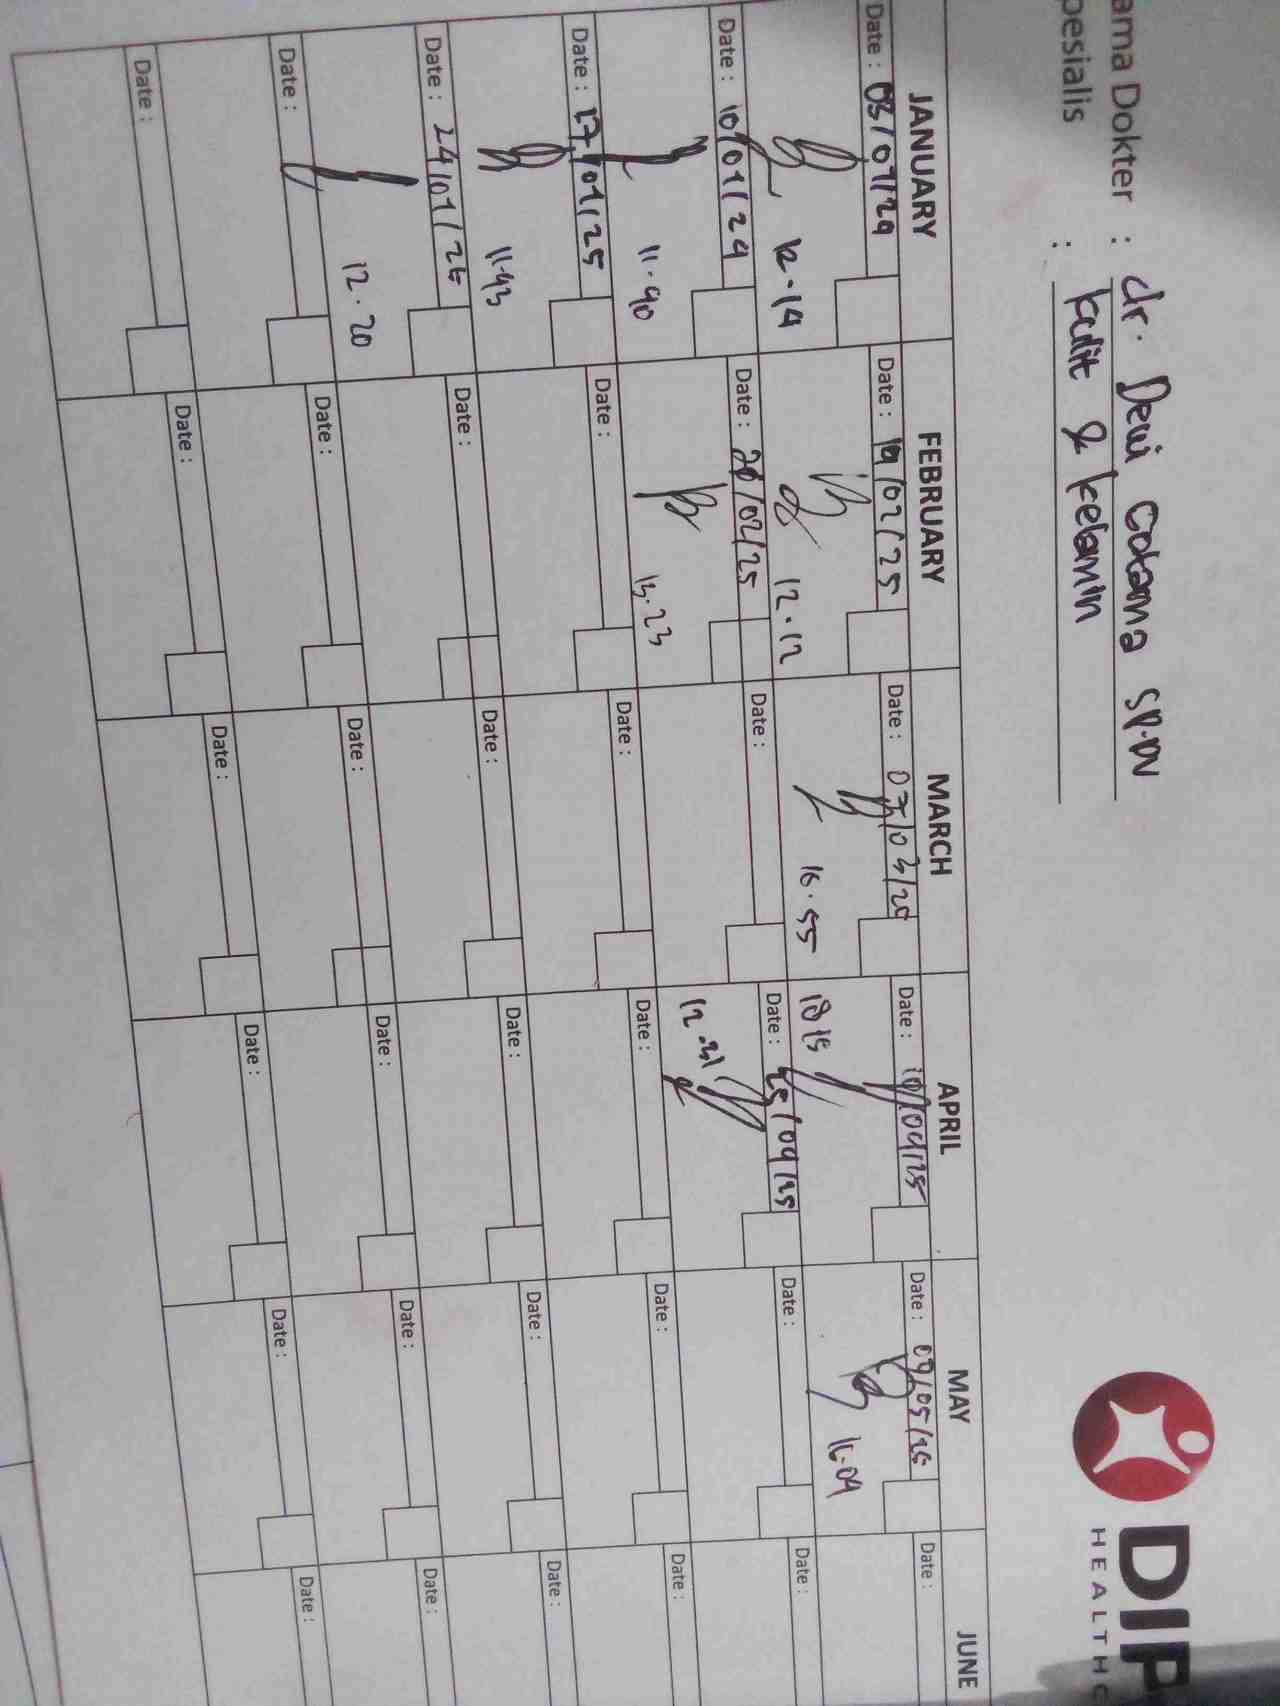 ama Dokter : dr. Dewi Cotama SP.DV
pesialis : kulit & kelamin
DIP
HEALTHC
JANUARY FEBRUARY MARCH APRIL MAY JUNE
Date : 03/01/24 Date : 19/02/25 Date : 07/03/25 Date : 10/04/25 Date : 09/05/25 Date :
12.14 12.12 16.55 1815 16.04
Date : 10/01/24 Date : 20/02/25 Date : Date : 25/04/25 Date : Date :
11.40 13.23 12.31
Date : 17/01/25 Date : Date : Date : Date : Date :
11.43
Date : 24/01/25 Date : Date : Date : Date : Date :
12.20
Date : Date : Date : Date : Date : Date :
Date : Date : Date : Date : Date :